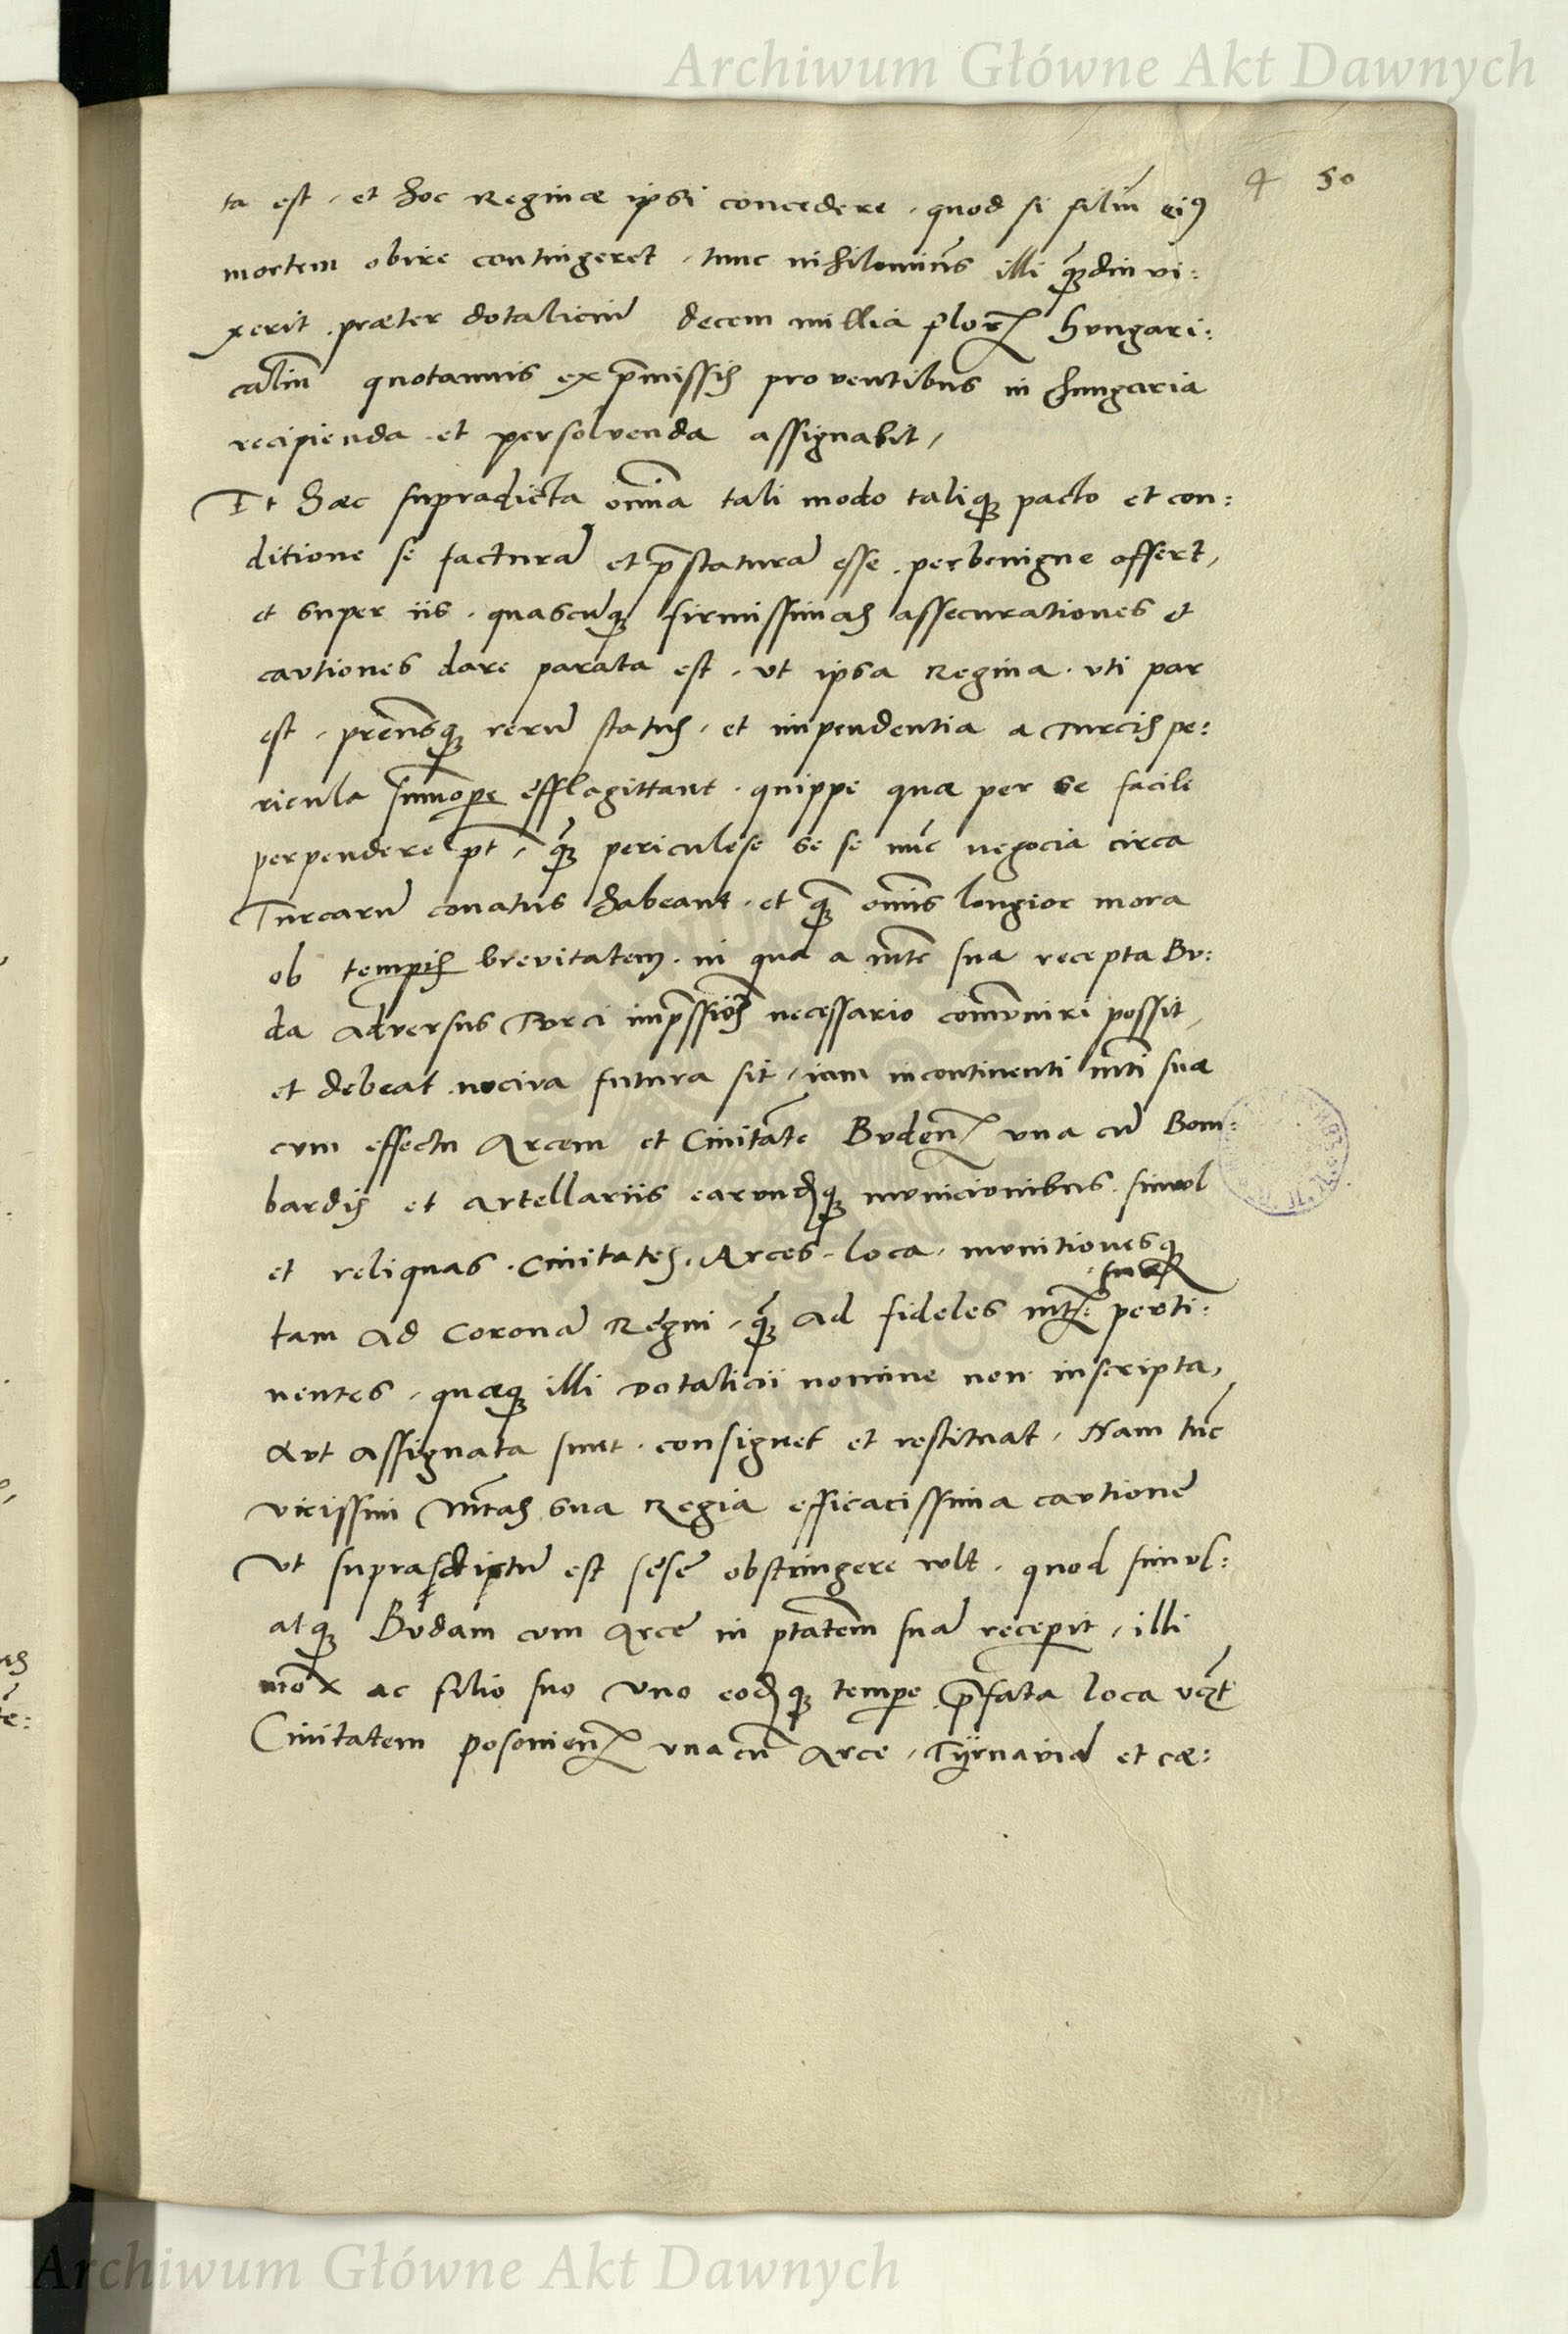 Archiwum Główne Akt Dawnych
4 50
ta est, et hoc Reginæ ipsi concedere, quod si filiū eiꝰ
mortem obire contingeret, tunc nihilominꝰs illi q̃ꝫdiu vi:
xerit, præter dotaliciū decem millia floꝝ hungari:
caliū quotannis ex p̄missis proventibus in hungaria
recipienda et persolvenda assignabit,
Et hæc supradicta om̄ia tali modo taliqꝫ pacto et con:
ditione se facturā et p̄staturā esse perbenigne offert,
et super iis, quascūqꝫ firmissimas assecurationes et
cavtiones dare parata est, vt ipsa Regina, vti par
est, prēnsqꝫ rerū status, et impendentia a Turcis pe:
ricula sum̄ope efflagittant, quippe quæ per se facile
perpendere pt̄, q̃ꝫ periculose se se nūc negocia circa
Turcarū conatus habeant, et q̃ꝫ om̄is longior mora
ob tempis brevitatem, in qua a mt̄e sua recepta Bv:
da adversus Tvrci imp̄ssiōes necessario comvniri possit,
et debeat nociva futura sit, iam incontinenti mt̄i suæ
cvm effectu Arcem et Civitatē Bvdenꝝ vna cū Bom:
bardis et artellariis earvndqꝫ mvnicionibus, simvl
et reliquas Civitates, Arces, loca, mvnitionesqꝫ
suæ
tam ad Coronā Regni, q̃ꝫ ad fideles mt̄is perti:
nentes, quæqꝫ illi dotalicii nomine non inscripta,
avt assignata sunt, consignet et restituat, Nam tūc
vicissim Mt̄as sua Regia efficacissima cavtionē
vt suprascriptū est sesē obstringere vvlt, quod simvl:
atqꝫ Bvdam cvm Arcē in ptātem suā receperit, illi
mox ac filio suo vno eodqꝫ tempe p̄fata loca vcꝫt
Civitatem posonienꝝ vna cū Arce, Tÿrnaviā et cæ:
Archiwum Główne Akt Dawnych